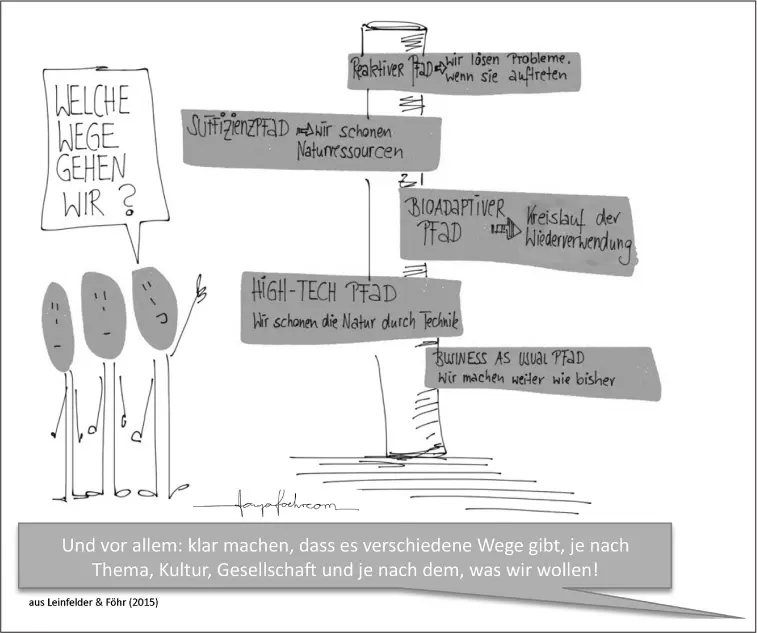 WELCHE
WEGE
GEHEN
WIR ?
REaktiver PFaD ⇨ wir lösen Probleme,
wenn sie auftreten
SUFFIZIENZPFaD ⇨ wir schonen
Naturressourcen
BIOADAPTIVER
PFAD ⇨ Kreislauf der
Wiederverwendung
HIGH-TECH PFaD
Wir schonen die Natur durch Technik
BUSINESS AS USUAL PFAD
Wir machen weiter wie bisher
Und vor allem: klar machen, dass es verschiedene Wege gibt, je nach
Thema, Kultur, Gesellschaft und je nach dem, was wir wollen!
aus Leinfelder & Föhr (2015)